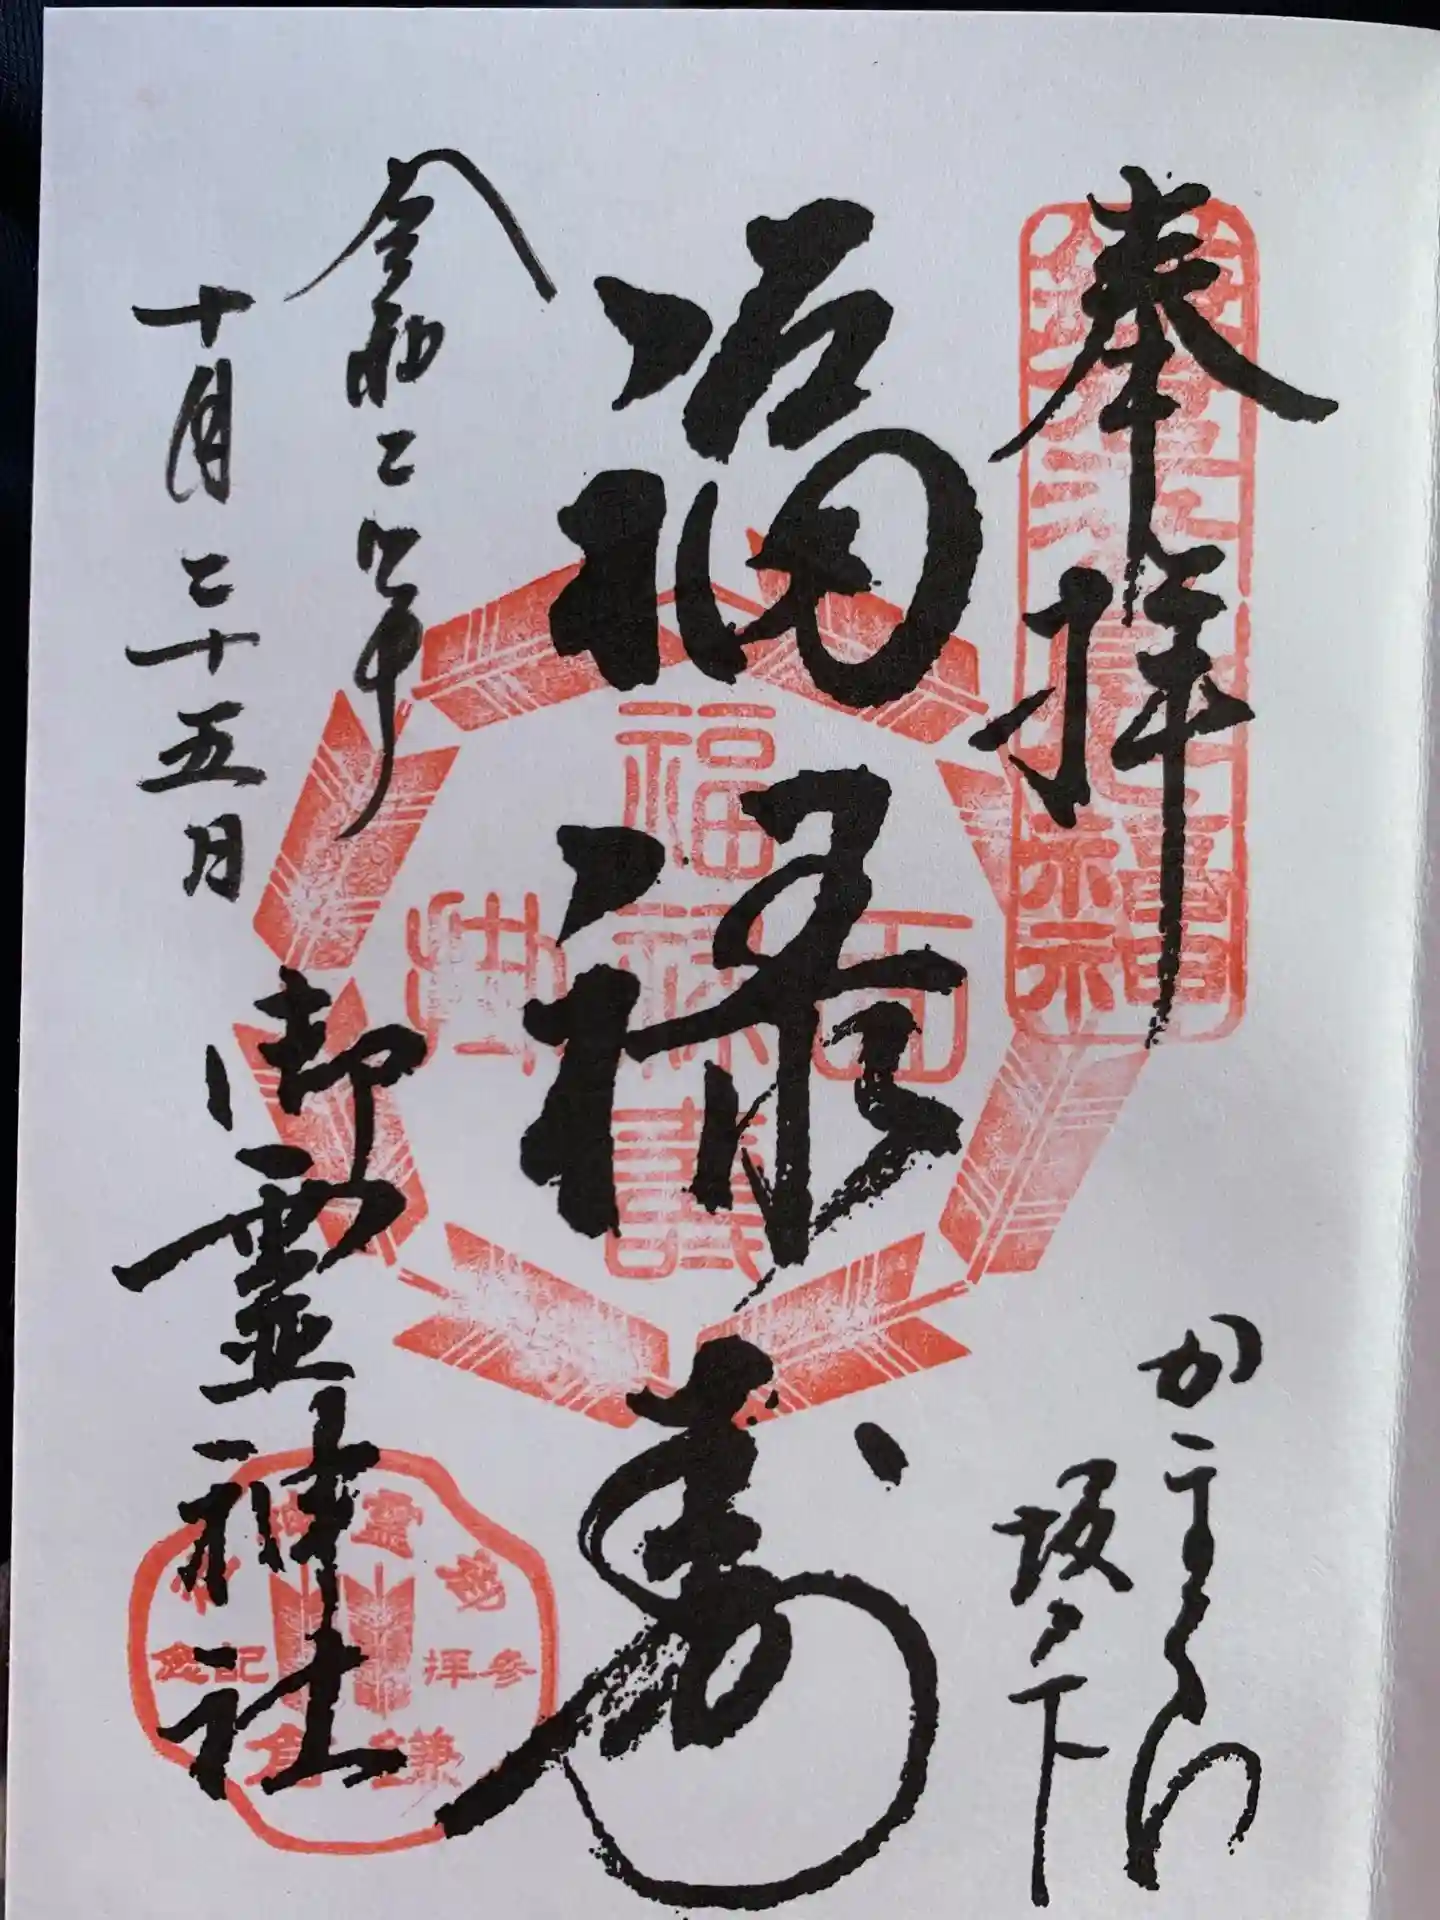 奉拝
かまくら
坂ノ下
福禄寿
令和二年
十月二十五日
御霊神社
福禄寿
面掛
御霊神社
参拝記念
鎌倉